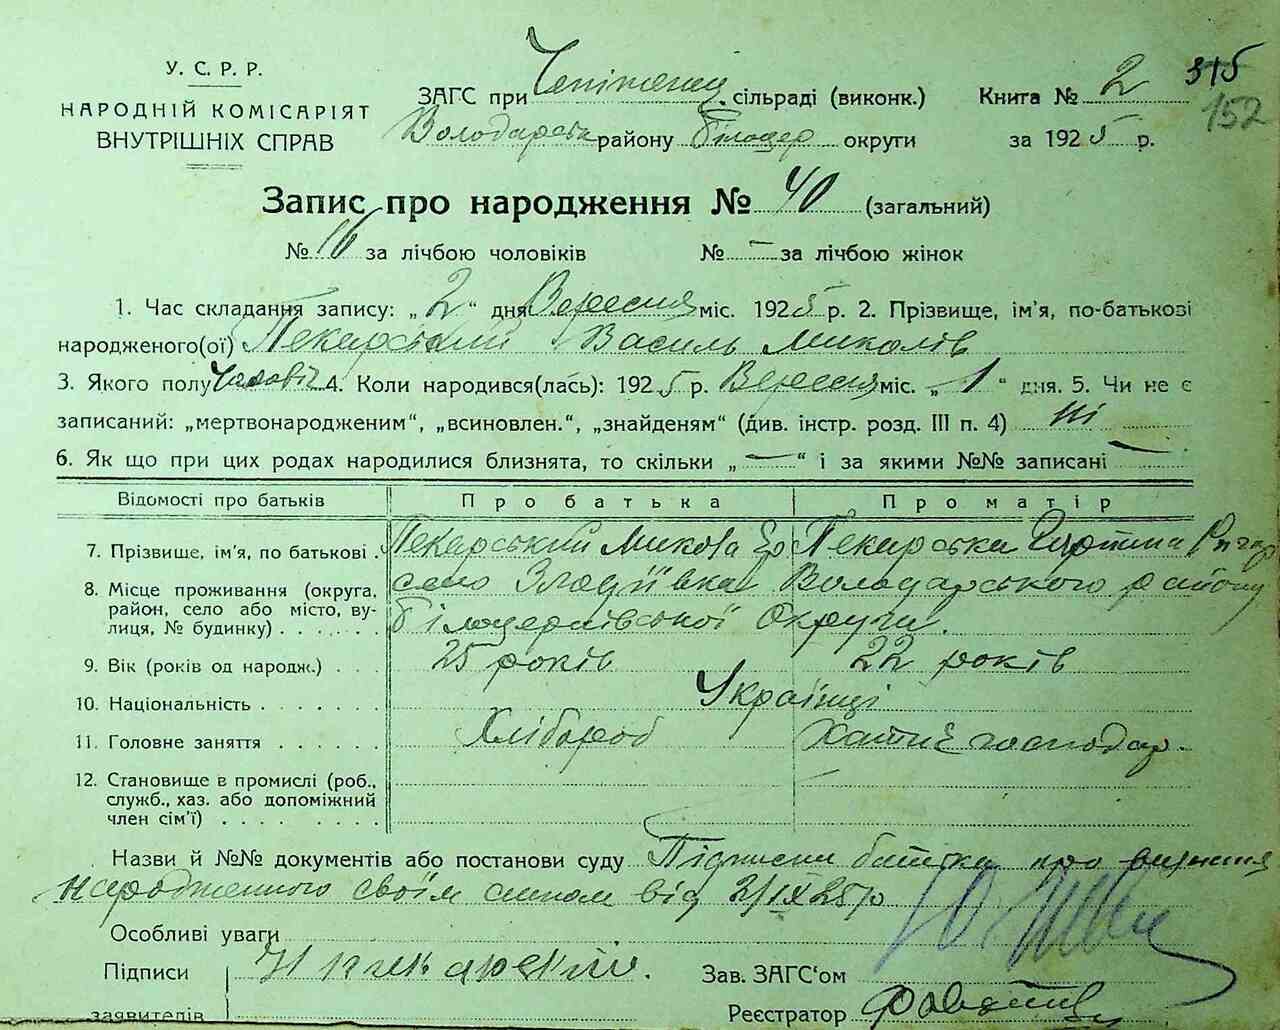 У. С. Р. Р.
НАРОДНІЙ КОМІСАРІЯТ
ВНУТРІШНІХ СПРАВ
ЗАГС при сільраді (виконк.) Книга № 2 315
152
Володарськ району Білоцер округи за 1925 р.
Запис про народження № 40 (загальний)
№ 16 за лічбою чоловіків № – за лічбою жінок
1. Час складання запису: „2“ дня Вересня міс. 1925 р. 2. Прізвище, ім'я, по-батькові
народженого(ої) Пекарський Василь Миколів
3. Якого полу Чоловіч 4. Коли народився(лась): 1925 р. Вересня міс. „1“ дня. 5. Чи не є
записаний: „мертвонародженим“, „всиновлен.“, „знайденям“ (див. інстр. розд. III п. 4) ні
6. Як що при цих родах народилися близнята, то скільки „—“ і за якими №№ записані —
Відомості про батьків Про батька Про матір
7. Прізвище, ім'я, по батькові . Пекарський Микола Пекарська
8. Місце проживання (округа, район, село або місто, вулиця, № будинку) . . . . . . село Володарського району
Білоцерківської Округи.
9. Вік (років од народж.) . . . 25 років 22 років
10. Національність . . . . . . . Українці
11. Головне заняття . . . . . . Хлібороб Хатнє господар.
12. Становище в промислі (роб.,
служб., хаз. або допоміжний
член сім'ї) . . . . . . . .
Назви й №№ документів або постанови суду Підписки батька про визнання
народженного своїм сином від 2/IX 25 р
Особливі уваги
Підписи Н пикарский. Зав. ЗАГС'ом
заявителів Реєстратор